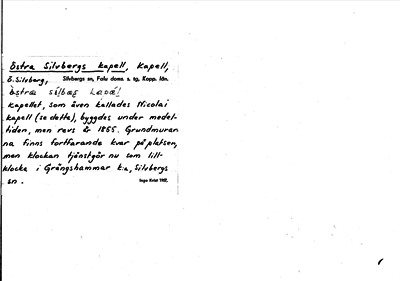 Östra Silvbergs kapell, Kapell,
Ö. Silvberg, Silvbergs sn, Falu doms. s. tg, Kopp. län.
kapellet, som även kallades Nicolai
kapell (se detta), byggdes under medel-
tiden, men revs år 1865. Grundmurar
na finns fortfarande kvar på platsen,
men klockan tjänstgör nu som lill-
klocka i Grängshammar k:a, Silvbergs
sn.
Inga Kvist